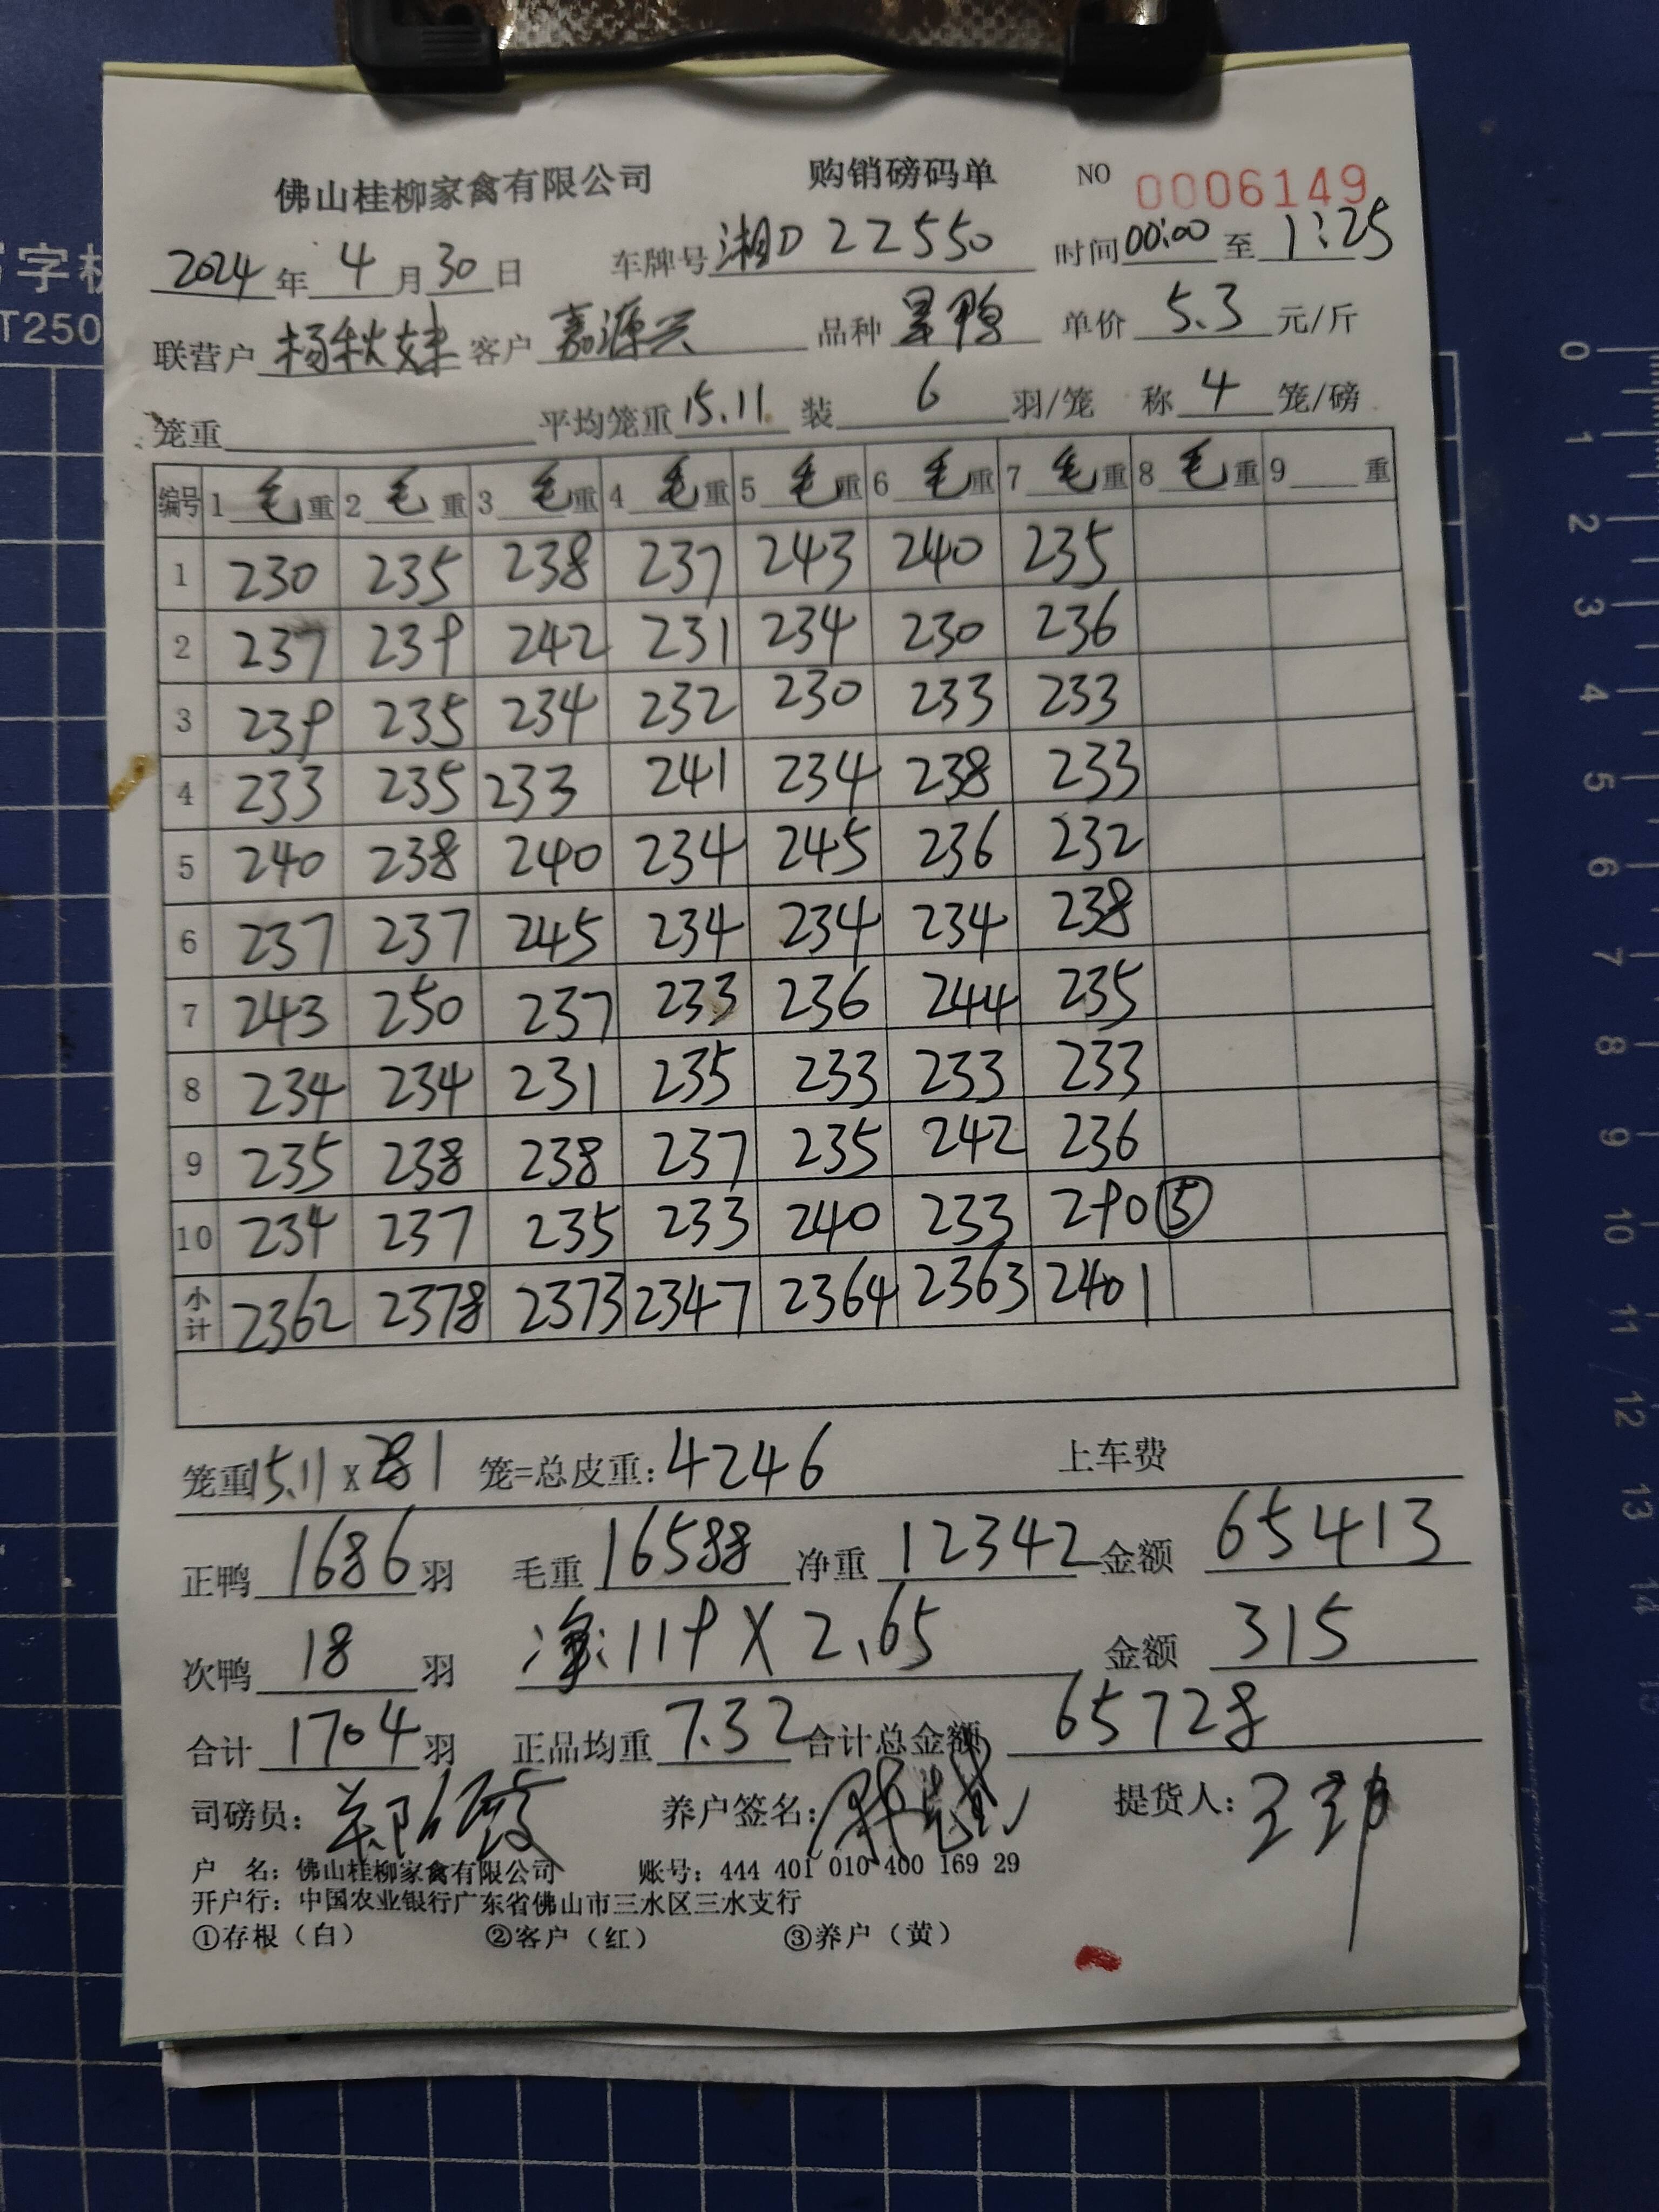 佛山桂柳家禽有限公司 购销磅码单 NO 0006149
2024年 4月30日 车牌号 湘D 22550 时间 00:00 至 1:25
联营户 杨秋妹 客户 嘉源兴 品种 鸭 单价 5.3 元/斤
笼重 平均笼重 15.11 装 6 羽/笼 称 4 笼/磅
编号 1 毛 重 2 毛 重 3 毛 重 4 毛 重 5 毛 重 6 毛 重 7 毛 重 8 毛 重 9 重
1 230 235 238 237 243 240 235
2 237 239 242 231 234 230 236
3 239 235 234 232 230 233 233
4 233 235 233 241 234 238 233
5 240 238 240 234 245 236 232
6 237 237 245 234 234 234 238
7 243 250 237 233 236 244 235
8 234 234 231 235 233 233 233
9 235 238 238 237 235 242 236
10 234 237 235 233 240 233 290 ⑤
小计 2362 2378 2373 2347 2364 2363 2401
笼重 15.11 X 281 笼=总皮重: 4246 上车费
正鸭 1686 羽 毛重 16588 净重 12342 金额 65413
次鸭 18 羽 净: 119 X 2.65 金额 315
合计 1704 羽 正品均重 7.32 合计总金额 65728
司磅员: 养户签名: 提货人:
户 名: 佛山桂柳家禽有限公司 账号: 444 401 010 400 169 29
开户行: 中国农业银行广东省佛山市三水区三水支行
①存根（白） ②客户（红） ③养户（黄）
0
1
2
3
4
5
6
7
8
9
10
11
12
13
14